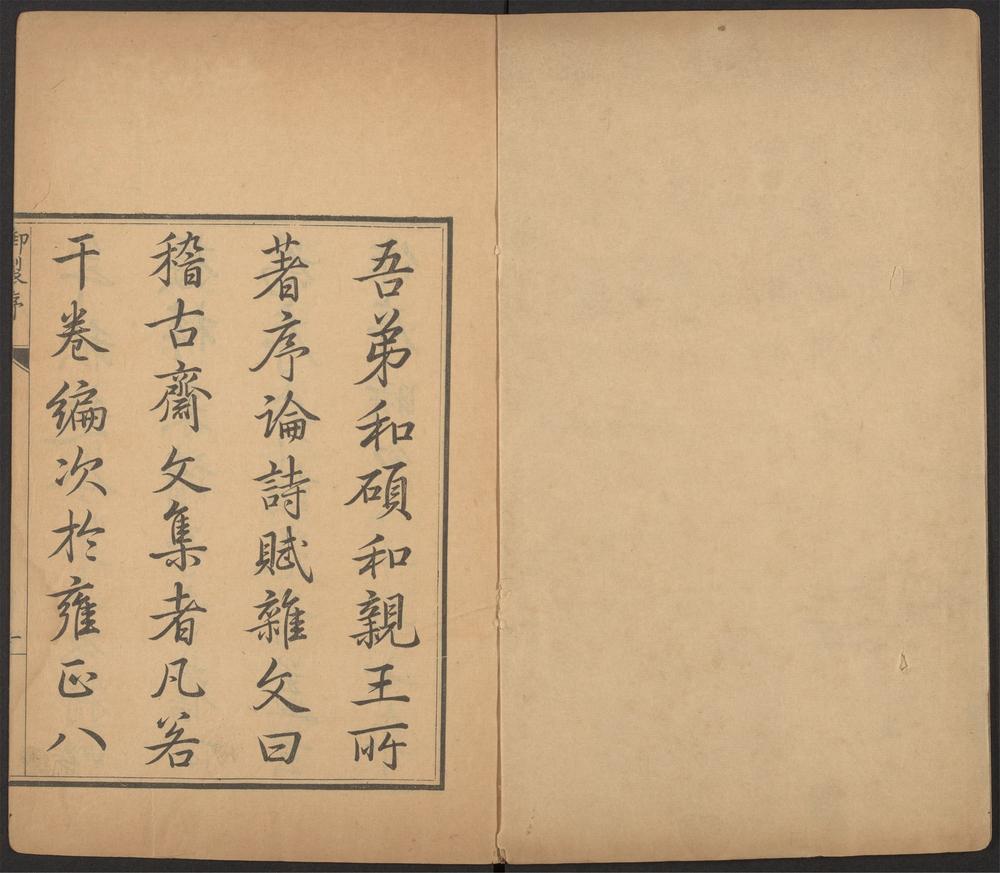 吾弟和碩和親王所
著序論詩賦雜文曰
稽古齋文集者凡若
干卷編次於雍正八
御製序
一